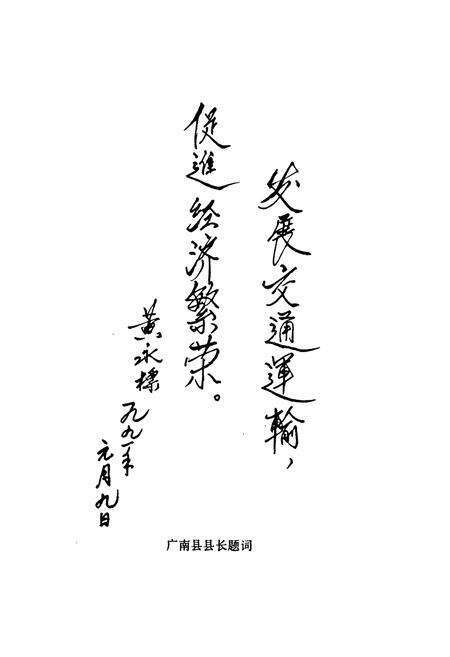 发展交通運輸，
促進经济繁荣。
黄永标
一九九一年
元月九日
广南县县长题词